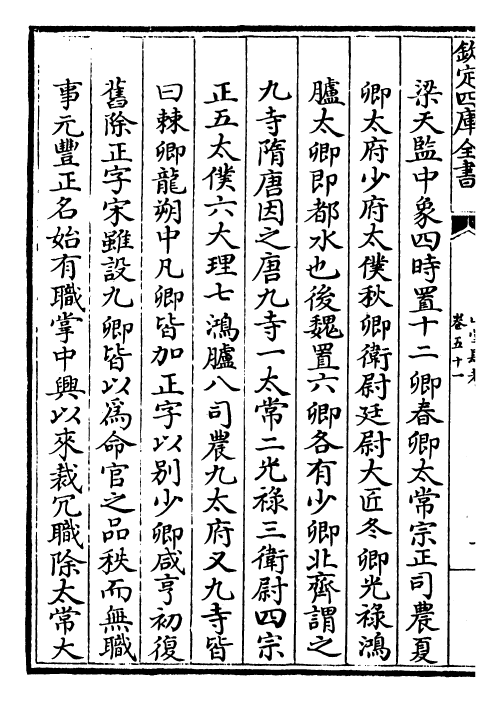 欽定四庫全書
卷五十一
梁天監中象四時置十二卿春卿太常宗正司農夏
卿太府少府太僕秋卿衛尉廷尉大匠冬卿光禄鴻
臚太卿即都水也後魏置六卿各有少卿北齊謂之
九寺隋唐因之唐九寺一太常二光禄三衛尉四宗
正五太僕六大理七鴻臚八司農九太府又九寺皆
曰棘卿龍朔中凡卿皆加正字以别少卿咸亨初復
舊除正字宋雖設九卿皆以爲命官之品秩而無職
事元豐正名始有職掌中興以來裁冗職除太常大